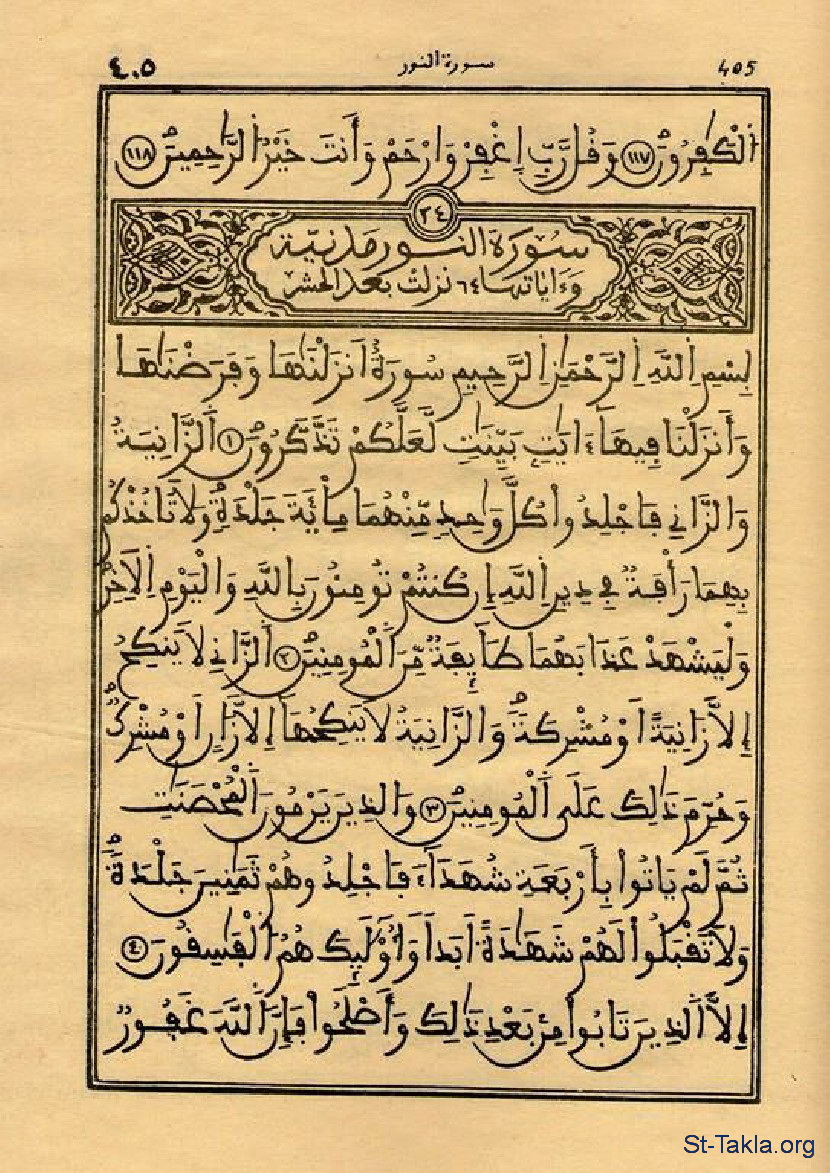 ٤٠٥ سورة النور 405
اَ۬لْكَٰفِرُونَۖ ١١٧ وَقُل رَّبِّ اِ۪غْفِرْ وَارْحَمْ وَأَنتَ خَيْرُ اُ۬لرَّٰحِمِينَۖ ١١٨
٢٤
سُورَةُ النُّورِ مَدَنِيَّة
وَءَايَاتُهَا ٦٤ نَزَلَتْ بَعْدَ الْحَشْرِ
بِسْمِ اِ۬للَّهِ اِ۬لرَّحْمَٰنِ اِ۬لرَّحِيمِ سُورَةٌ اَنزَلْنَٰهَا وَفَرَضْنَٰهَا
وَأَنزَلْنَا فِيهَآ ءَايَٰتِۢ بَيِّنَٰتٖ لَّعَلَّكُمْ تَذَّكَّرُونَۖ ١ اَ۬لزَّانِيَةُ
وَالزَّانِے فَاجْلِدُواْ كُلَّ وَٰحِدٖ مِّنْهُمَا مِاْئَةَ جَلْدَةٖۖ وَلَا تَاخُذْكُم
بِهِمَا رَأْفَةٞ فِے دِينِ اِ۬للَّهِ إِن كُنتُمْ تُومِنُونَ بِاللَّهِ وَالْيَوْمِ اِ۬لَاخِرِ
وَلْيَشْهَدْ عَذَابَهُمَا طَآئِفَةٞ مِّنَ اَ۬لْمُومِنِينَۖ ٢ اَ۬لزَّانِے لَا يَنكِحُ
إِلَّا زَانِيَةً اَوْ مُشْرِكَةٗۖ وَالزَّانِيَةُ لَا يَنكِحُهَآ إِلَّا زَانٍ اَوْ مُشْرِكٞۖ
وَحُرِّمَ ذَٰلِكَ عَلَى اَ۬لْمُومِنِينَۖ ٣ وَالذِينَ يَرْمُونَ اَ۬لْمُحْصَنَٰتِ
ثُمَّ لَمْ يَاتُواْ بِأَرْبَعَةِ شُهَدَآءَ فَاجْلِدُوهُمْ ثَمَٰنِينَ جَلْدَةٗۖ
وَلَا تَقْبَلُواْ لَهُمْ شَهَٰدَةً اَبَداٗ وَأُوْلَٰٓئِكَ هُمُ اُ۬لْفَٰسِقُونَ ٤
إِلَّا اَ۬لذِينَ تَابُواْ مِنۢ بَعْدِ ذَٰلِكَ وَأَصْلَحُواْ فَإِنَّ اَ۬للَّهَ غَفُورٞ
St-Takla.org